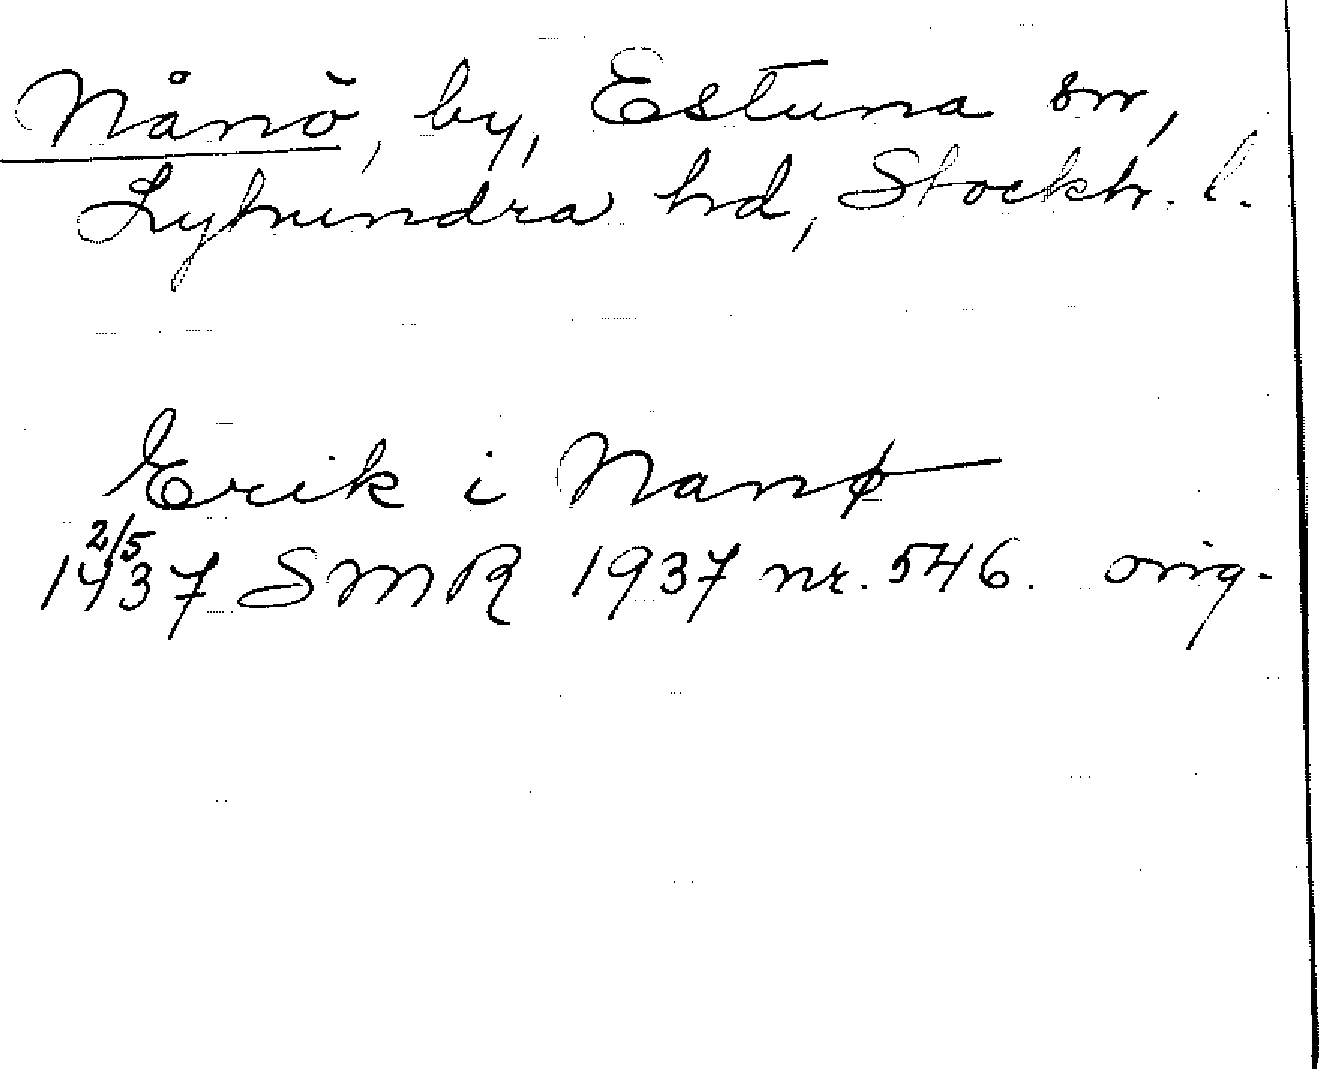 Nånö, by, Estuna sn,
Lyhundra hd, Stockh. l.
Erik i Nanø
2/5
1437 SMR 1937 nr. 546. orig.